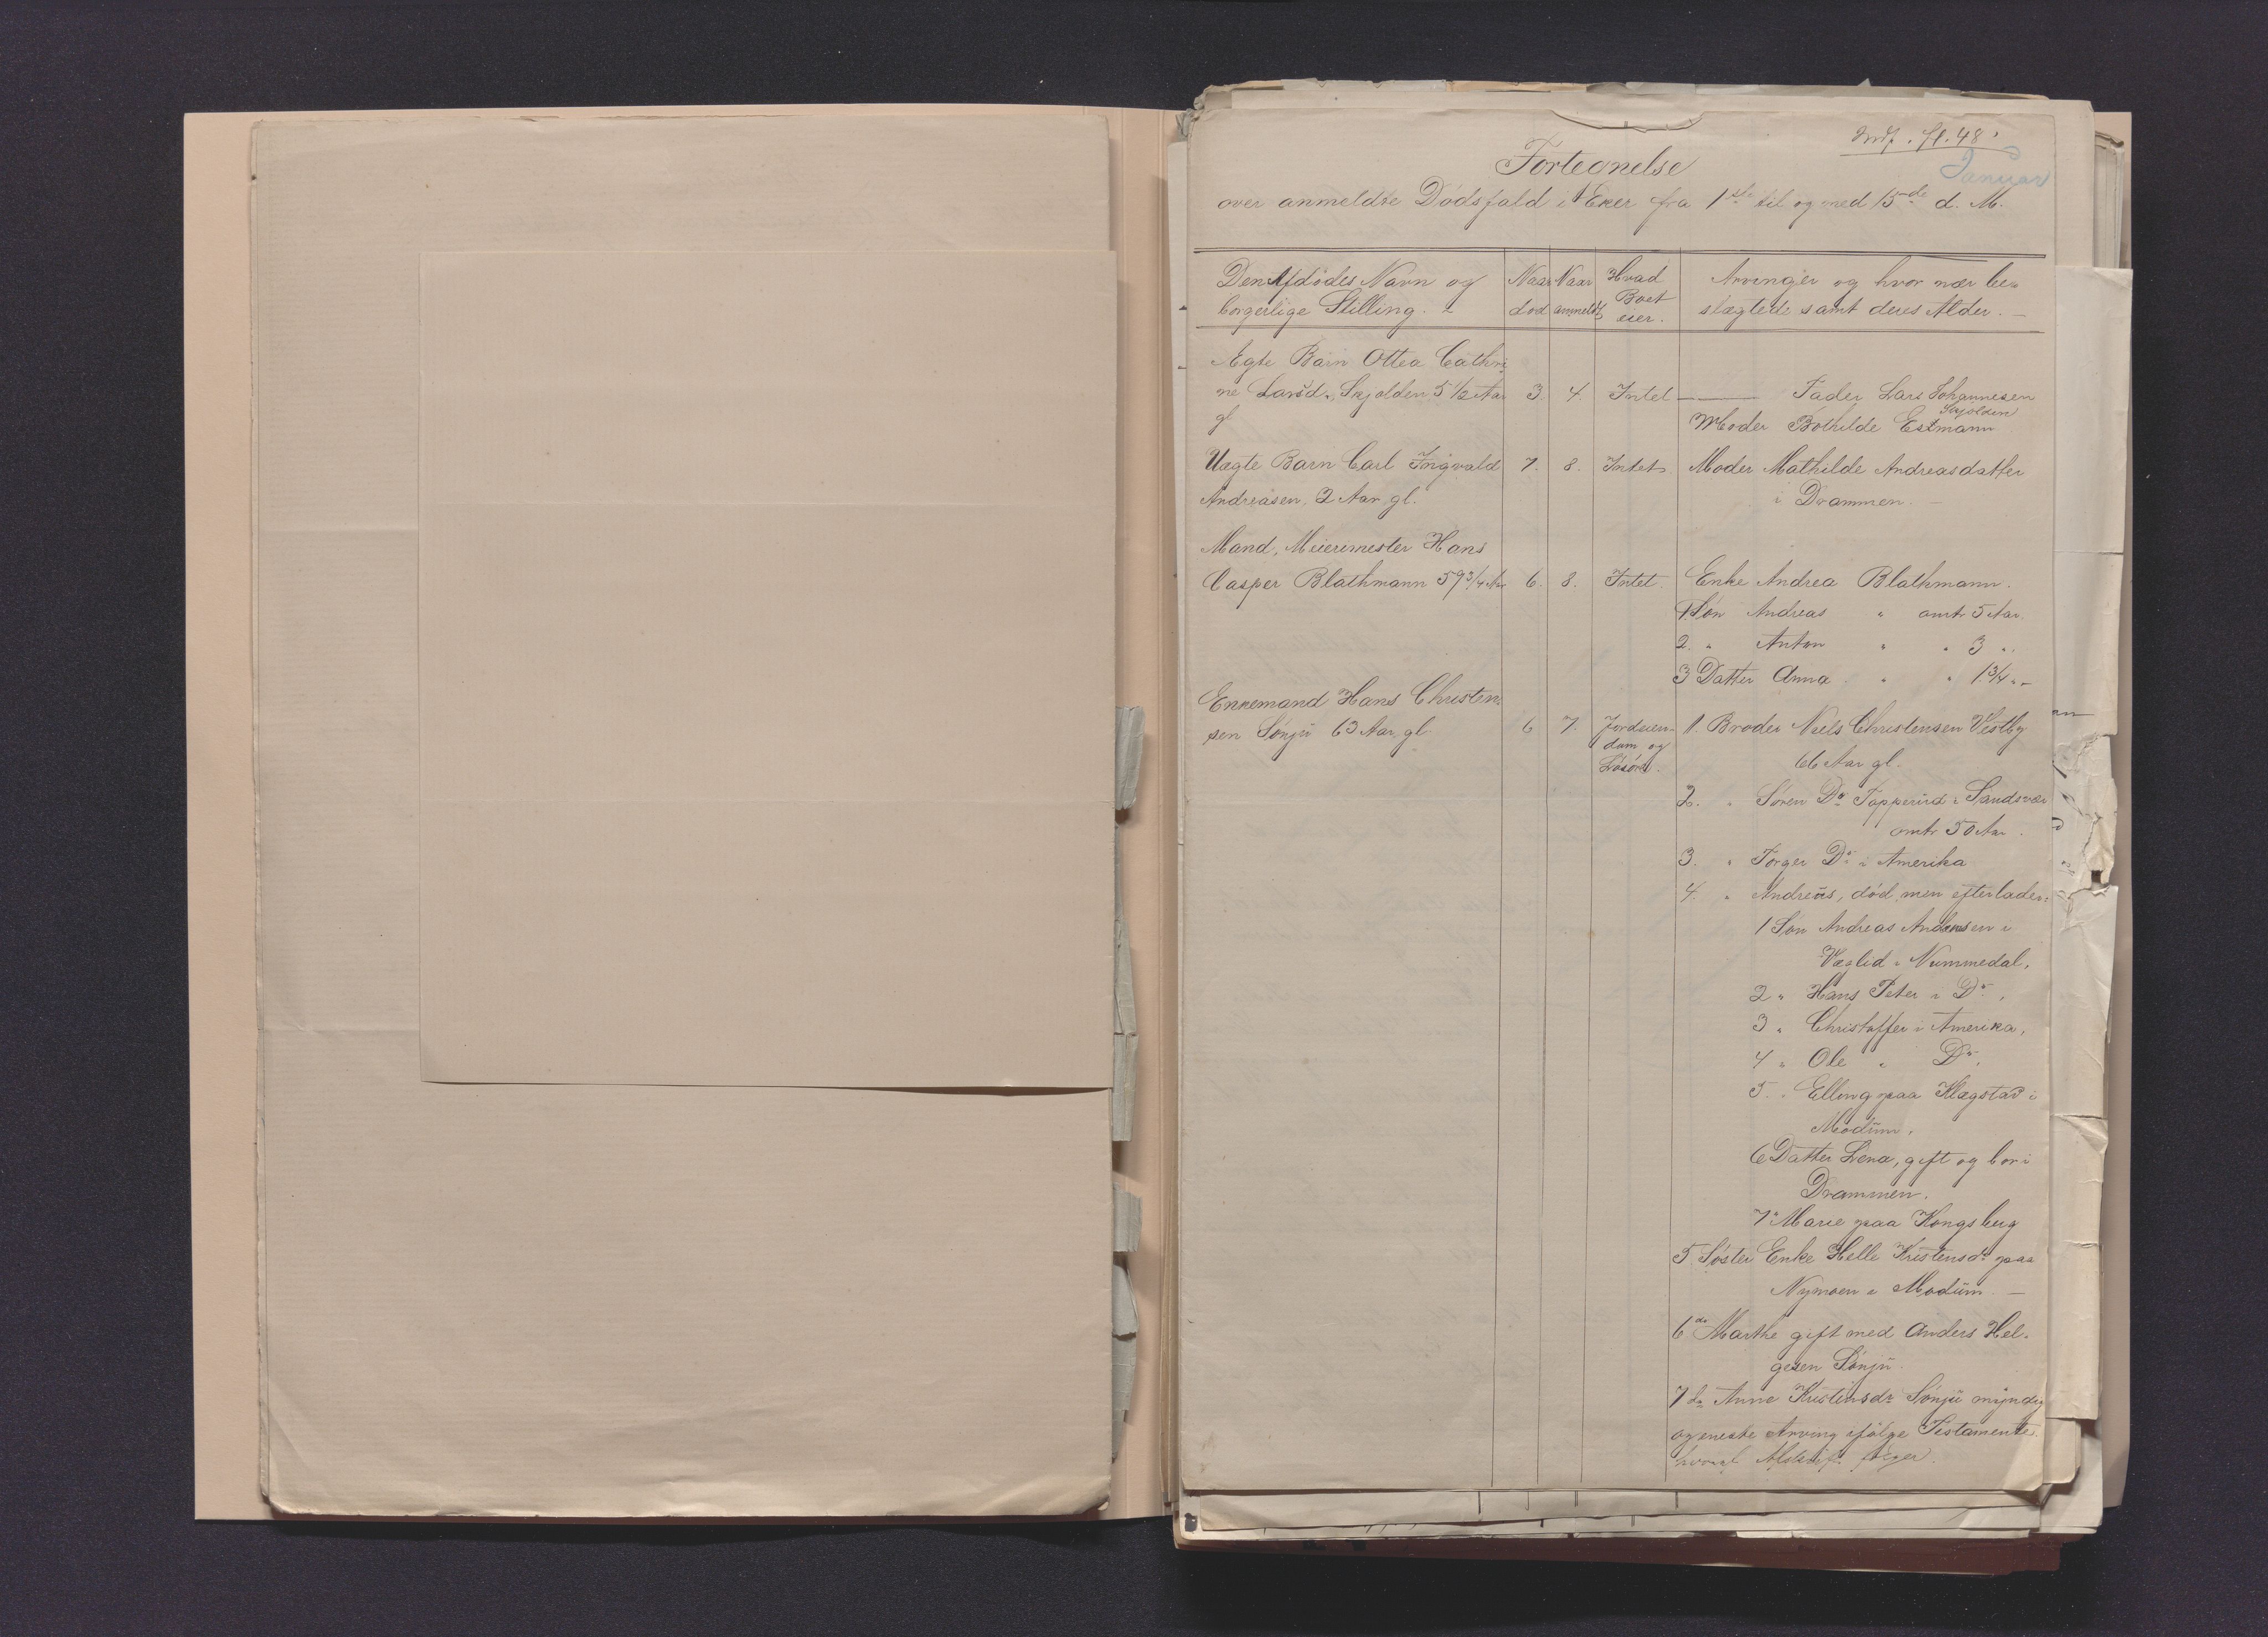 Indf. fl. 48
Januar
Fortegnelse
over anmeldte Dødsfald i N Eker fra 1ste til og med 15de d. M.
Den Afdødes Navn og borgerlige Stilling.
Naar død
Naar anmeldt
Hvad Boet eier.
Arvinger og hvor nær beslægtede samt deres Alder.
Ægte Barn Ottea Cathri
ne Larsd. Skjolden 5 1/2 Aar 3. 4. Intet Fader Lars Johannesen
gl Skjolden
Moder Bothilde Estmann
Uægte Barn Carl Ingvald 7. 8. Intet Moder Mathilde Andreasdatter
Andreasen, 2 Aar gl. i Drammen.
Mand, Meierimester Hans
Casper Blathmann 59 3/4 Aar 6. 8. Intet. Enke Andrea Blathmann.
1 Søn Andreas " omtr 5 Aar
2. " Anton " " 3 "
3 Datter Anna " " 1 3/4 "
Enkemand Hans Christen
sen Sønju 63 Aar gl 6 7. Jordeien- 1. Broder Niels Christensen Vestby
dom og 66 Aar gl.
Løsøre.
2. " Søren Do Tapperud i Sandsvær
omtr 50 Aar.
3. " Torger Do i Amerika
4. " Andreas, død, men efterlader:
1 Søn Andreas Andersen i
Væglid i Nummedal,
2 " Hans Peter i Do,
3 " Christoffer i Amerika,
4 " Ole " Do,
5. " Elling paa Klægstad i
Modum,
6 Datter Lena, gift og bor i
Drammen.
7 " Marie paa Kongsberg
5 Søster Enke Helle Kristensdr paa
Nymoen i Modum
6 do Marthe gift med Anders Hel-
gesen Sønju.
7 do Anne Kristensdr Sønju myndig
og eneste Arving ifølge Testamente
hvoraf Afskrift følger.